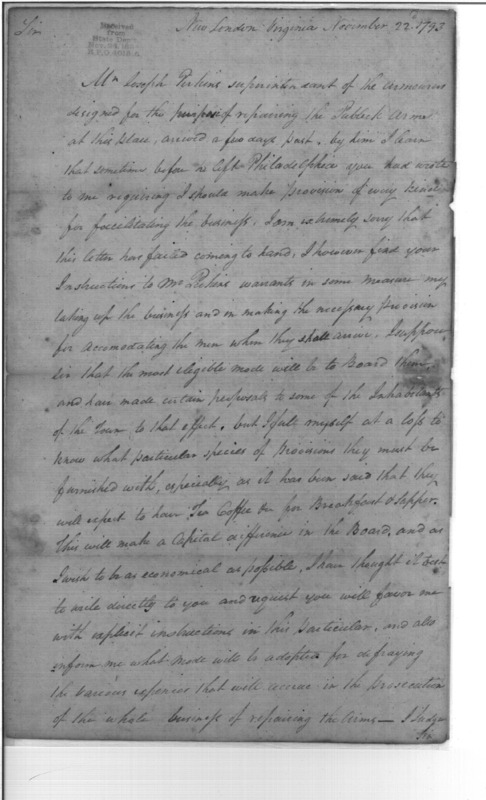 Sir New London Virginia November 22d. 1793
Received
from
State Dept.
Mr. Joseph Perkins superintendant of the armourers
designed for the purpose of repairing the Publick Arms
at this place, arrived a few days past. by him I learn
that sometime before he left Philadelphia you had wrote
to me requiring I should make provision of every kind
for facilitating the business. I am extremely sorry that
this letter has failed coming to hand; I however find your
Instructions to Mr. Perkins warrants in some measure my
taking up the business and in making the necessary provision
for accomodating the men when they shall arrive. I suppose
sir that the most eligible mode will be to Board them,
and have made certain proposals to some of the Inhabitants
of the Town to that effect. but I felt myself at a loss to
know what particular species of Provisions they must be
furnished with, especially as it has been said that they
will expect to have Tea Coffee &c for Breakfast & supper.
This will make a Capital difference in the Board, and as
I wish to be as economical as possible, I have thought it best
to write directly to you and request you will favor me
with explicit instructions in this particular, and also
inform me what mode will be adopted for defraying
the various expences that will accrue in the prosecution
of the whole business of repairing the Arms — I Judge
Sir